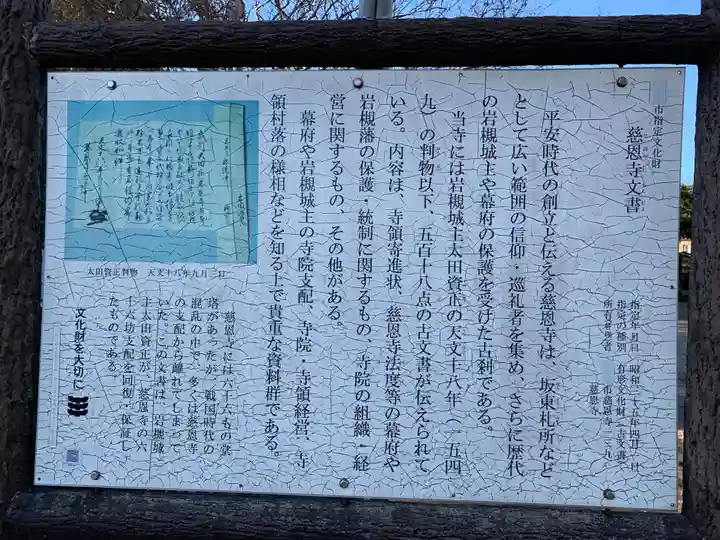 市指定文化財
慈恩寺文書
指定の種別 有形文化財（古文書）
慈恩寺
平安時代の創立と伝える慈恩寺は、坂東札所など
として広い範囲の信仰・巡礼者を集め、さらに歴代
の岩槻城主や幕府の保護を受けた古刹である。
当寺には岩槻城主太田資正の天文十八年（一五四
九）の判物以下、五百十八点の古文書が伝えられて
いる。内容は、寺領寄進状、慈恩寺法度等の幕府や
岩槻藩の保護・統制に関するもの、寺院の組織・経
営に関するもの、その他がある。
幕府や岩槻城主の寺院支配、寺院・寺領経営、寺
領村落の様相などを知る上で貴重な資料群である。
太田資正判物 天文十八年九月三日
慈恩寺には六十六もの堂
塔があったが、戦国時代の
混乱の中で、多くは慈恩寺
の支配から離れてしまって
いた。この文書は、岩槻城
主太田資正が、慈恩寺の六
十六坊支配を回復・保証し
たものである。
文化財を大切に